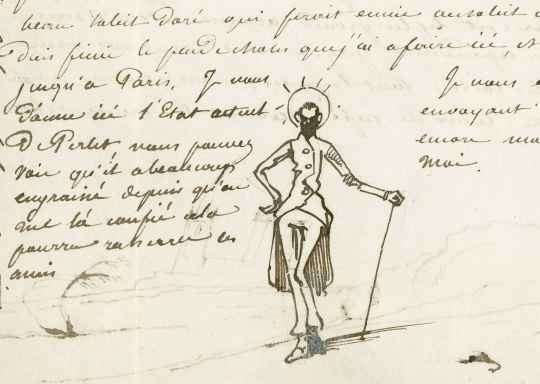 beau soleil Doré qui feroit envie au soleil
Dois finir le peu de chais que j'ai a foure ici et
jusqu'a Paris. Je vous Je vous
Donne ici l'Etat actuel envoyant
De Perlet vous pouvez encore
voir qu'il a beaucoup moi.
engraissé depuis qu'on
me l'a confié cela
pourra rassurer ses
amis